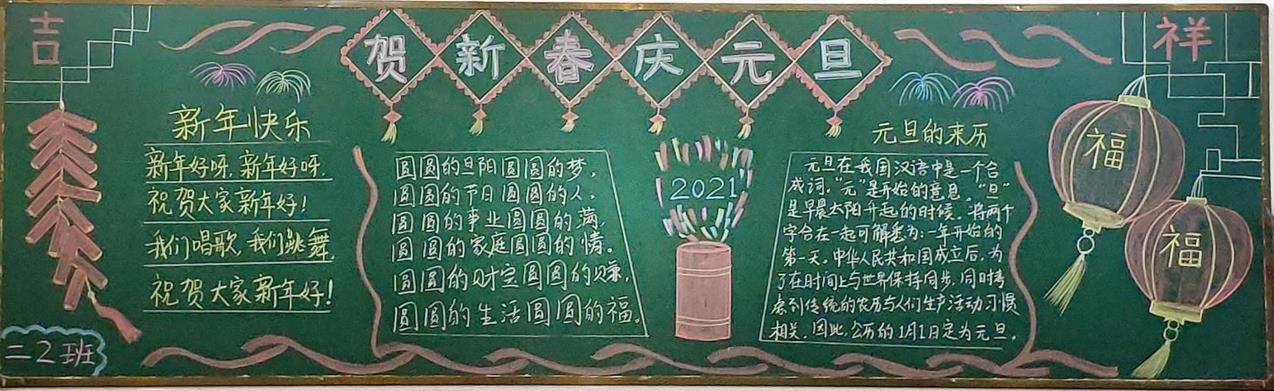 吉
贺新春庆元旦
祥
新年快乐
新年好呀,新年好呀,
祝贺大家新年好!
我们唱歌,我们跳舞,
祝贺大家新年好!
二2班
圆圆的旦阳圆圆的梦,
圆圆的节日圆圆的人,
圆圆的事业圆圆的满,
圆圆的家庭圆圆的情。
圆圆的财宝圆圆的
圆圆的生活圆圆的福。
2021
元旦的来历
元旦在我国汉语中是一个合
成词,"元"是开始的意思,"旦"
是早晨太阳升起的时候,将两个
字合在一起可解悉为:一年开始的
第一天。中华人民共和国成立后,为
了在时间上与世界保持同步,同时考
虑到传统的农历与人们生产活动习惯
相关,因此,公历的1月1日定为元旦。
福
福